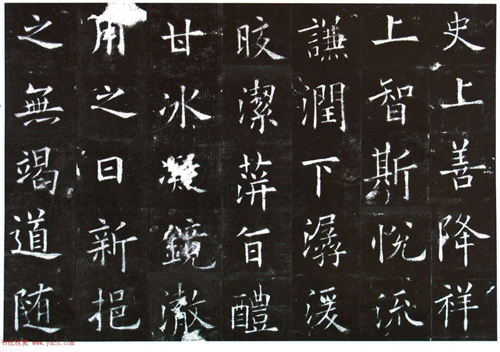 史上善降祥
上智斯悅流
謙潤下潺湲
晈潔蓱旨醴
甘冰凝鏡澈
用之日新挹
之無竭道随
书法欣赏 www.yac8.com